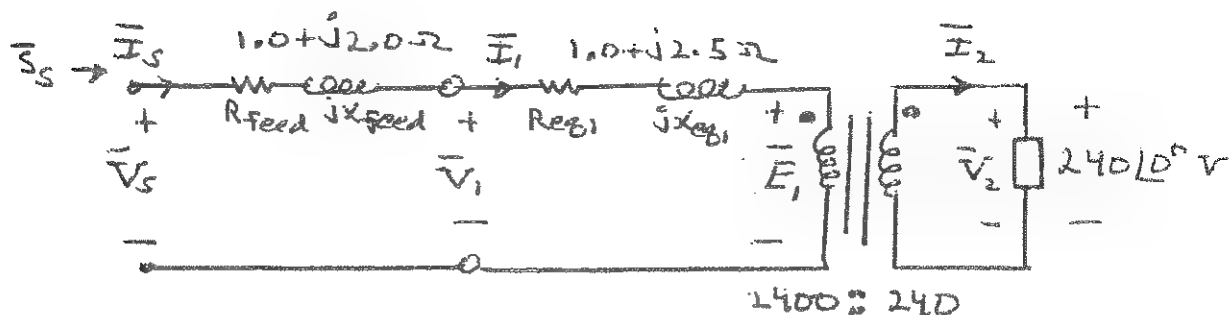 S̄s → Īs 1.0+j2.0Ω Ī₁ 1.0+j2.5Ω Ī₂
+ Rfeed jXfeed + Req₁ jXeq₁ + + +
V̄s V̄₁ Ē₁ V̄₂ 240∠0° V
− − − − −
2400 : 240